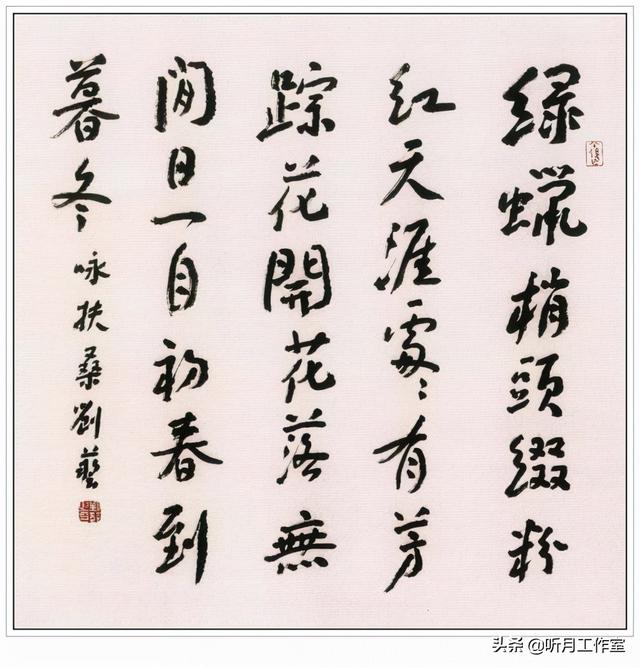 绿蠟梢頭綴粉
红天涯處々有芳
踪花開花落無
閒日一自初春到
暮冬 咏扶桑劉藝
头条 @听月工作室